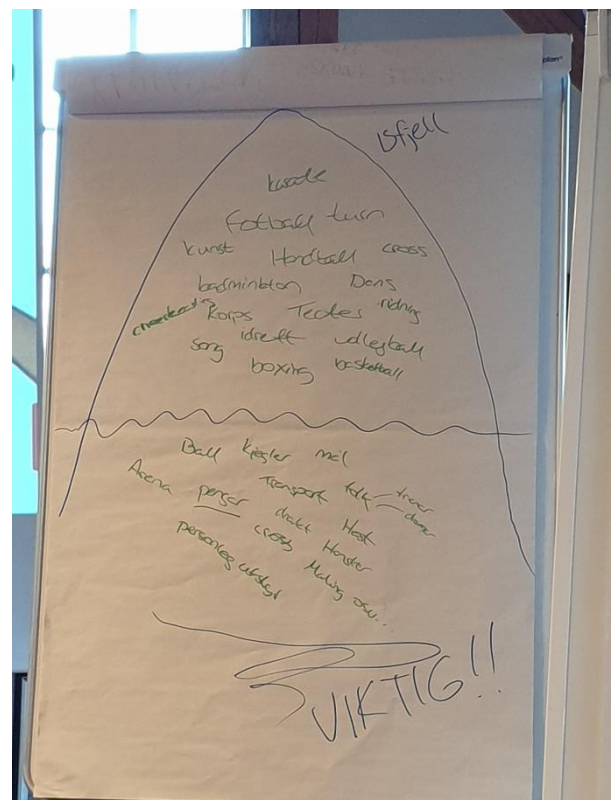 isfjell
karate
Fotball turn
kunst Handball cross
badminton Dans
cheerleading Korps Teater ridning
idrett volleyball
song boxing basketball
Ball Kjegler mål
Arena penger Transport folk trener
dommer
drakt Hest
cross Hansker
personleg utstyr Maling osv...
VIKTIG!!